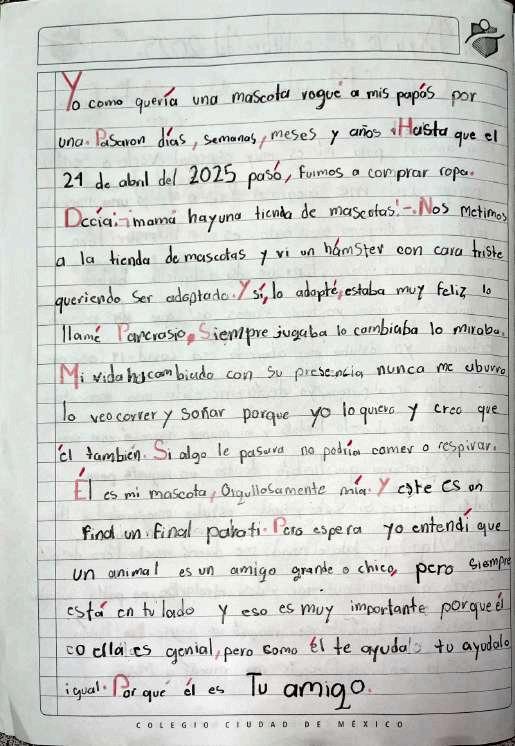 Yo como quería una mascota rogué a mis papás por
una. Pasaron días, semanas, meses y años. Hasta que el
24 de abril del 2025 pasó, fuimos a comprar ropa.
Decía:-¡mamá hay una tienda de mascotas!-. Nos metimos
a la tienda de mascotas y vi un hámster con cara triste
queriendo ser adoptado. Y sí, lo adopté, estaba muy feliz lo
llamé Pancrasio, Siempre jugaba lo cambiaba lo miraba.
Mi vida ha cambiado con su presencia nunca me aburro
lo veo correr y soñar porque yo lo quiero y creo que
él también. Si algo le pasara no podría comer o respirar.
Él es mi mascota, Orgullosamente mía. Y este es un
final un final para ti. Pero espera yo entendí que
un animal es un amigo grande o chico, pero siempre
está en tu lado y eso es muy importante porque él
o ella es genial, pero como él te ayuda tu ayudalo
igual. Por qué él es Tu amigo.
COLEGIO CIUDAD DE MÉXICO